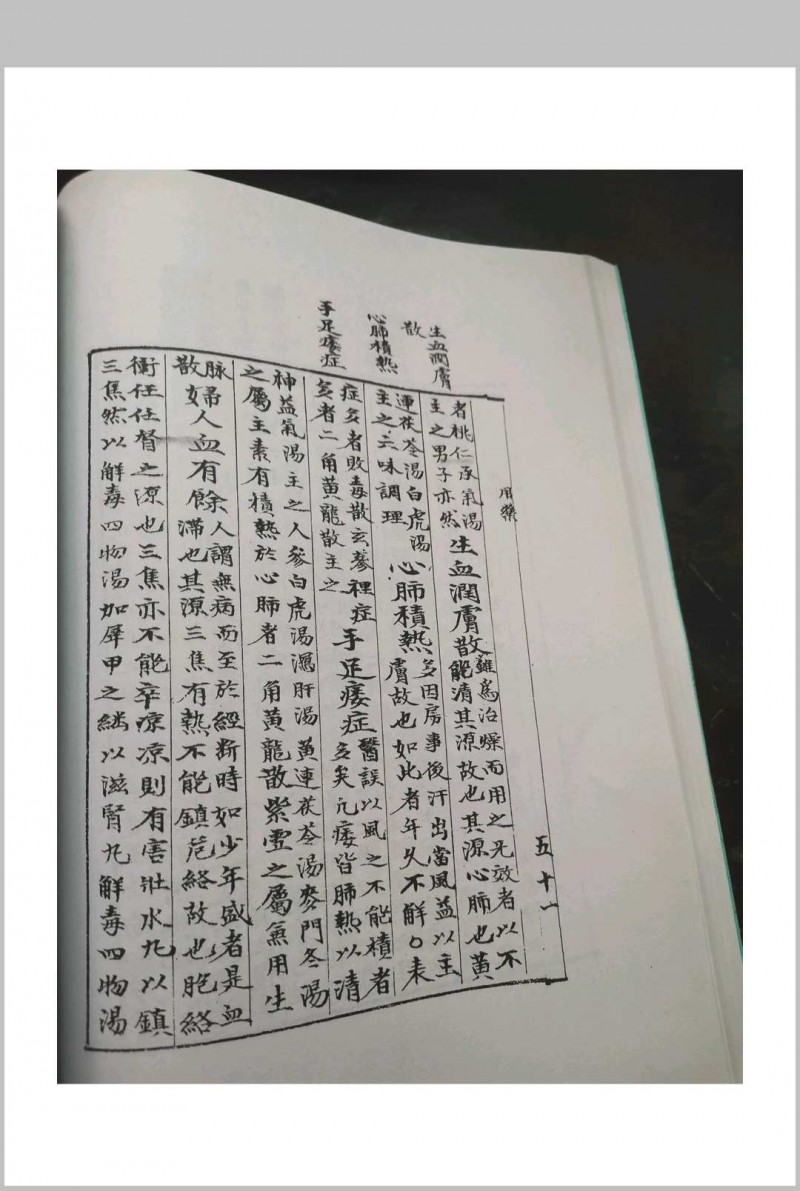 用藥
五十一
生血潤膚
散
心肺積熱
手足痿症
者桃仁承氣湯
主之男子亦然
生血潤膚散
雖為治燥而用之无效者以不
能清其源故也其源心肺也黃
連茯苓湯白虎湯
主之六味調理
心肺積熱
多因房事後汗出當風益以主
膚故也如此者年久不解〇表
症多者敗毒散玄參裡症
多者二角黃龍散主之
手足痿症
醫誤以風之不能積者
多矣凡痿皆肺熱以清
神益氣湯主之人參白虎湯瀉肝湯黃連茯苓湯麥門冬湯
之屬主素有積熱於心肺者二角黃龍散紫雪之屬無用生
脉
散
婦人血有餘
人謂無病而至於經断時如少年盛者是血
滯也其源三焦有熱不能鎮危絡故也胞絡
衝任任督之源也三焦亦不能卒凉凉則有害壯水九以鎮
三焦然以解毒四物湯加犀甲之以滋腎九解毒四物湯